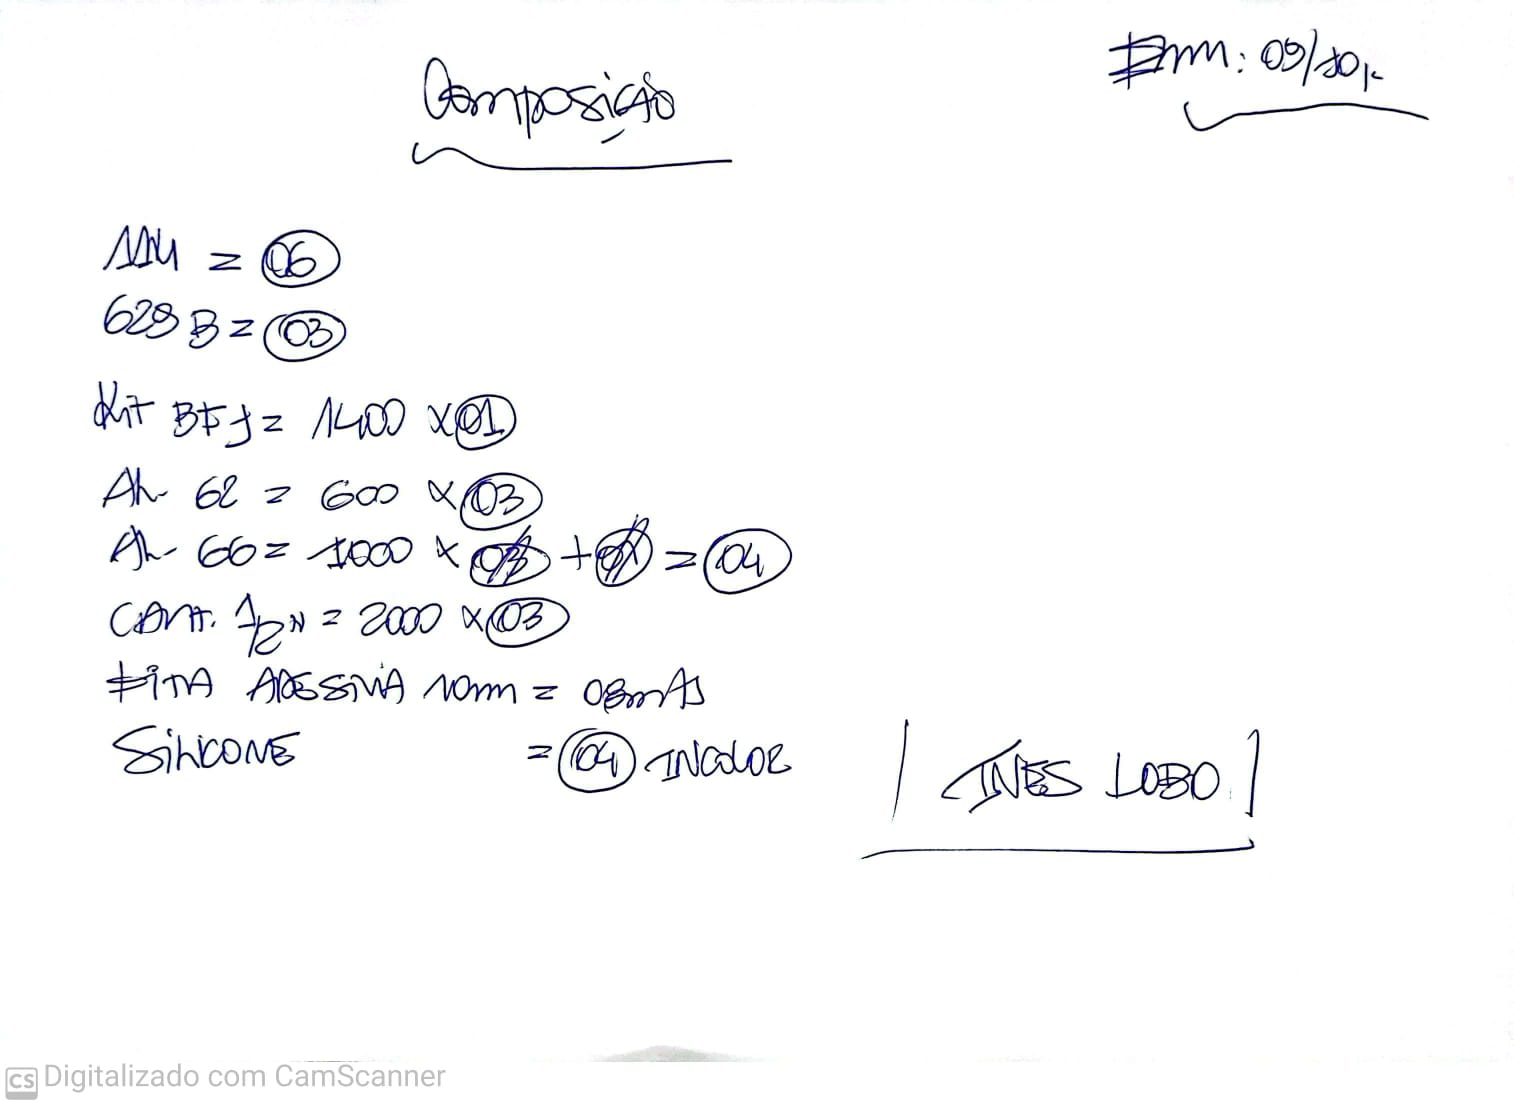 Composição
Fmm: 09/10
1114 = 06
628 B = 03
Kit BFJ = 1400 x 01
AL 62 = 600 x 03
AL 66 = 1000 x 03 + 01 = 04
CANT. 1/2" = 2000 x 03
FITA ADESSIVA 10mm = 08mts
SILICONE = 04 INCOLOR
INES LOBO
CS Digitalizado com CamScanner